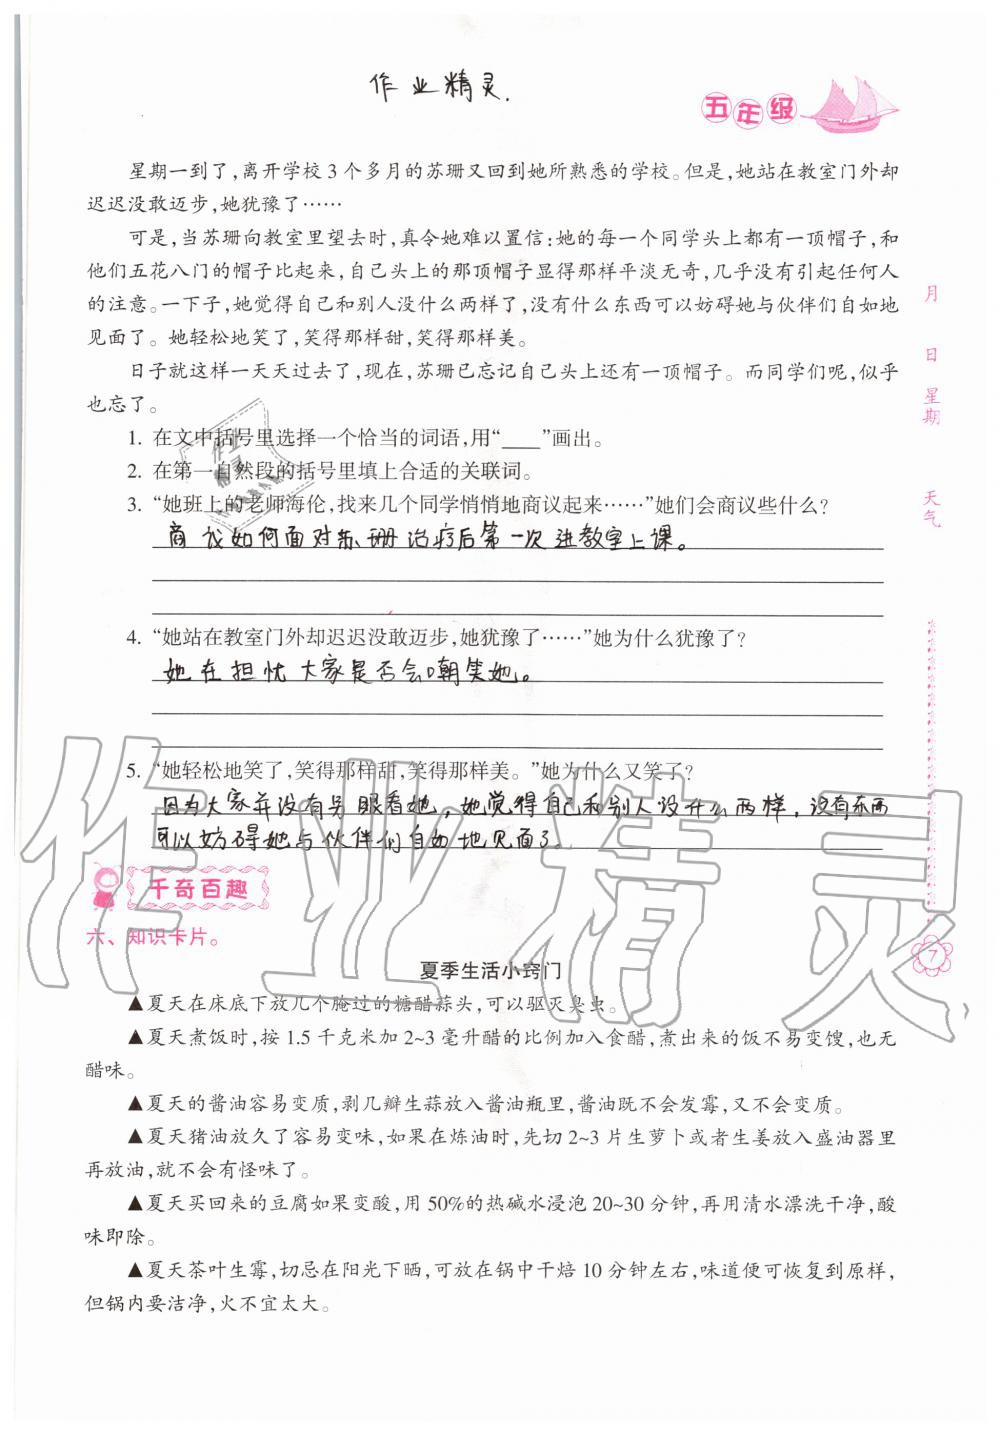 作业精灵.
五年级
星期一到了，离开学校3个多月的苏珊又回到她所熟悉的学校。但是，她站在教室门外却
迟迟没敢迈步，她犹豫了……
可是，当苏珊向教室里望去时，真令她难以置信：她的每一个同学头上都有一顶帽子，和
他们五花八门的帽子比起来，自己头上的那顶帽子显得那样平淡无奇，几乎没有引起任何人
的注意。一下子，她觉得自己和别人没什么两样了，没有什么东西可以妨碍她与伙伴们自如地
见面了。她轻松地笑了，笑得那样甜，笑得那样美。
日子就这样一天天过去了，现在，苏珊已忘记自己头上还有一顶帽子。而同学们呢，似乎
也忘了。
月 日 星期 天气
1. 在文中括号里选择一个恰当的词语，用“____”画出。
2. 在第一自然段的括号里填上合适的关联词。
3. “她班上的老师海伦，找来几个同学悄悄地商议起来……”她们会商议些什么？
商议如何面对苏珊治疗后第一次进教室上课。
4. “她站在教室门外却迟迟没敢迈步，她犹豫了……”她为什么犹豫了？
她在担忧大家是否会嘲笑她。
5. “她轻松地笑了，笑得那样甜，笑得那样美。”她为什么又笑了？
因为大家并没有另眼看她，她觉得自己和别人没什么两样，没有东西
可以妨碍她与伙伴们自如地见面了。
千奇百趣
六、知识卡片。
7
夏季生活小窍门
▲夏天在床底下放几个腌过的糖醋蒜头，可以驱灭臭虫。
▲夏天煮饭时，按1.5千克米加2~3毫升醋的比例加入食醋，煮出来的饭不易变馊，也无
醋味。
▲夏天的酱油容易变质，剥几瓣生蒜放入酱油瓶里，酱油既不会发霉，又不会变质。
▲夏天猪油放久了容易变味，如果在炼油时，先切2~3片生萝卜或者生姜放入盛油器里
再放油，就不会有怪味了。
▲夏天买回来的豆腐如果变酸，用50%的热碱水浸泡20~30分钟，再用清水漂洗干净，酸
味即除。
▲夏天茶叶生霉，切忌在阳光下晒，可放在锅中干焙10分钟左右，味道便可恢复到原样，
但锅内要洁净，火不宜太大。
作业精灵